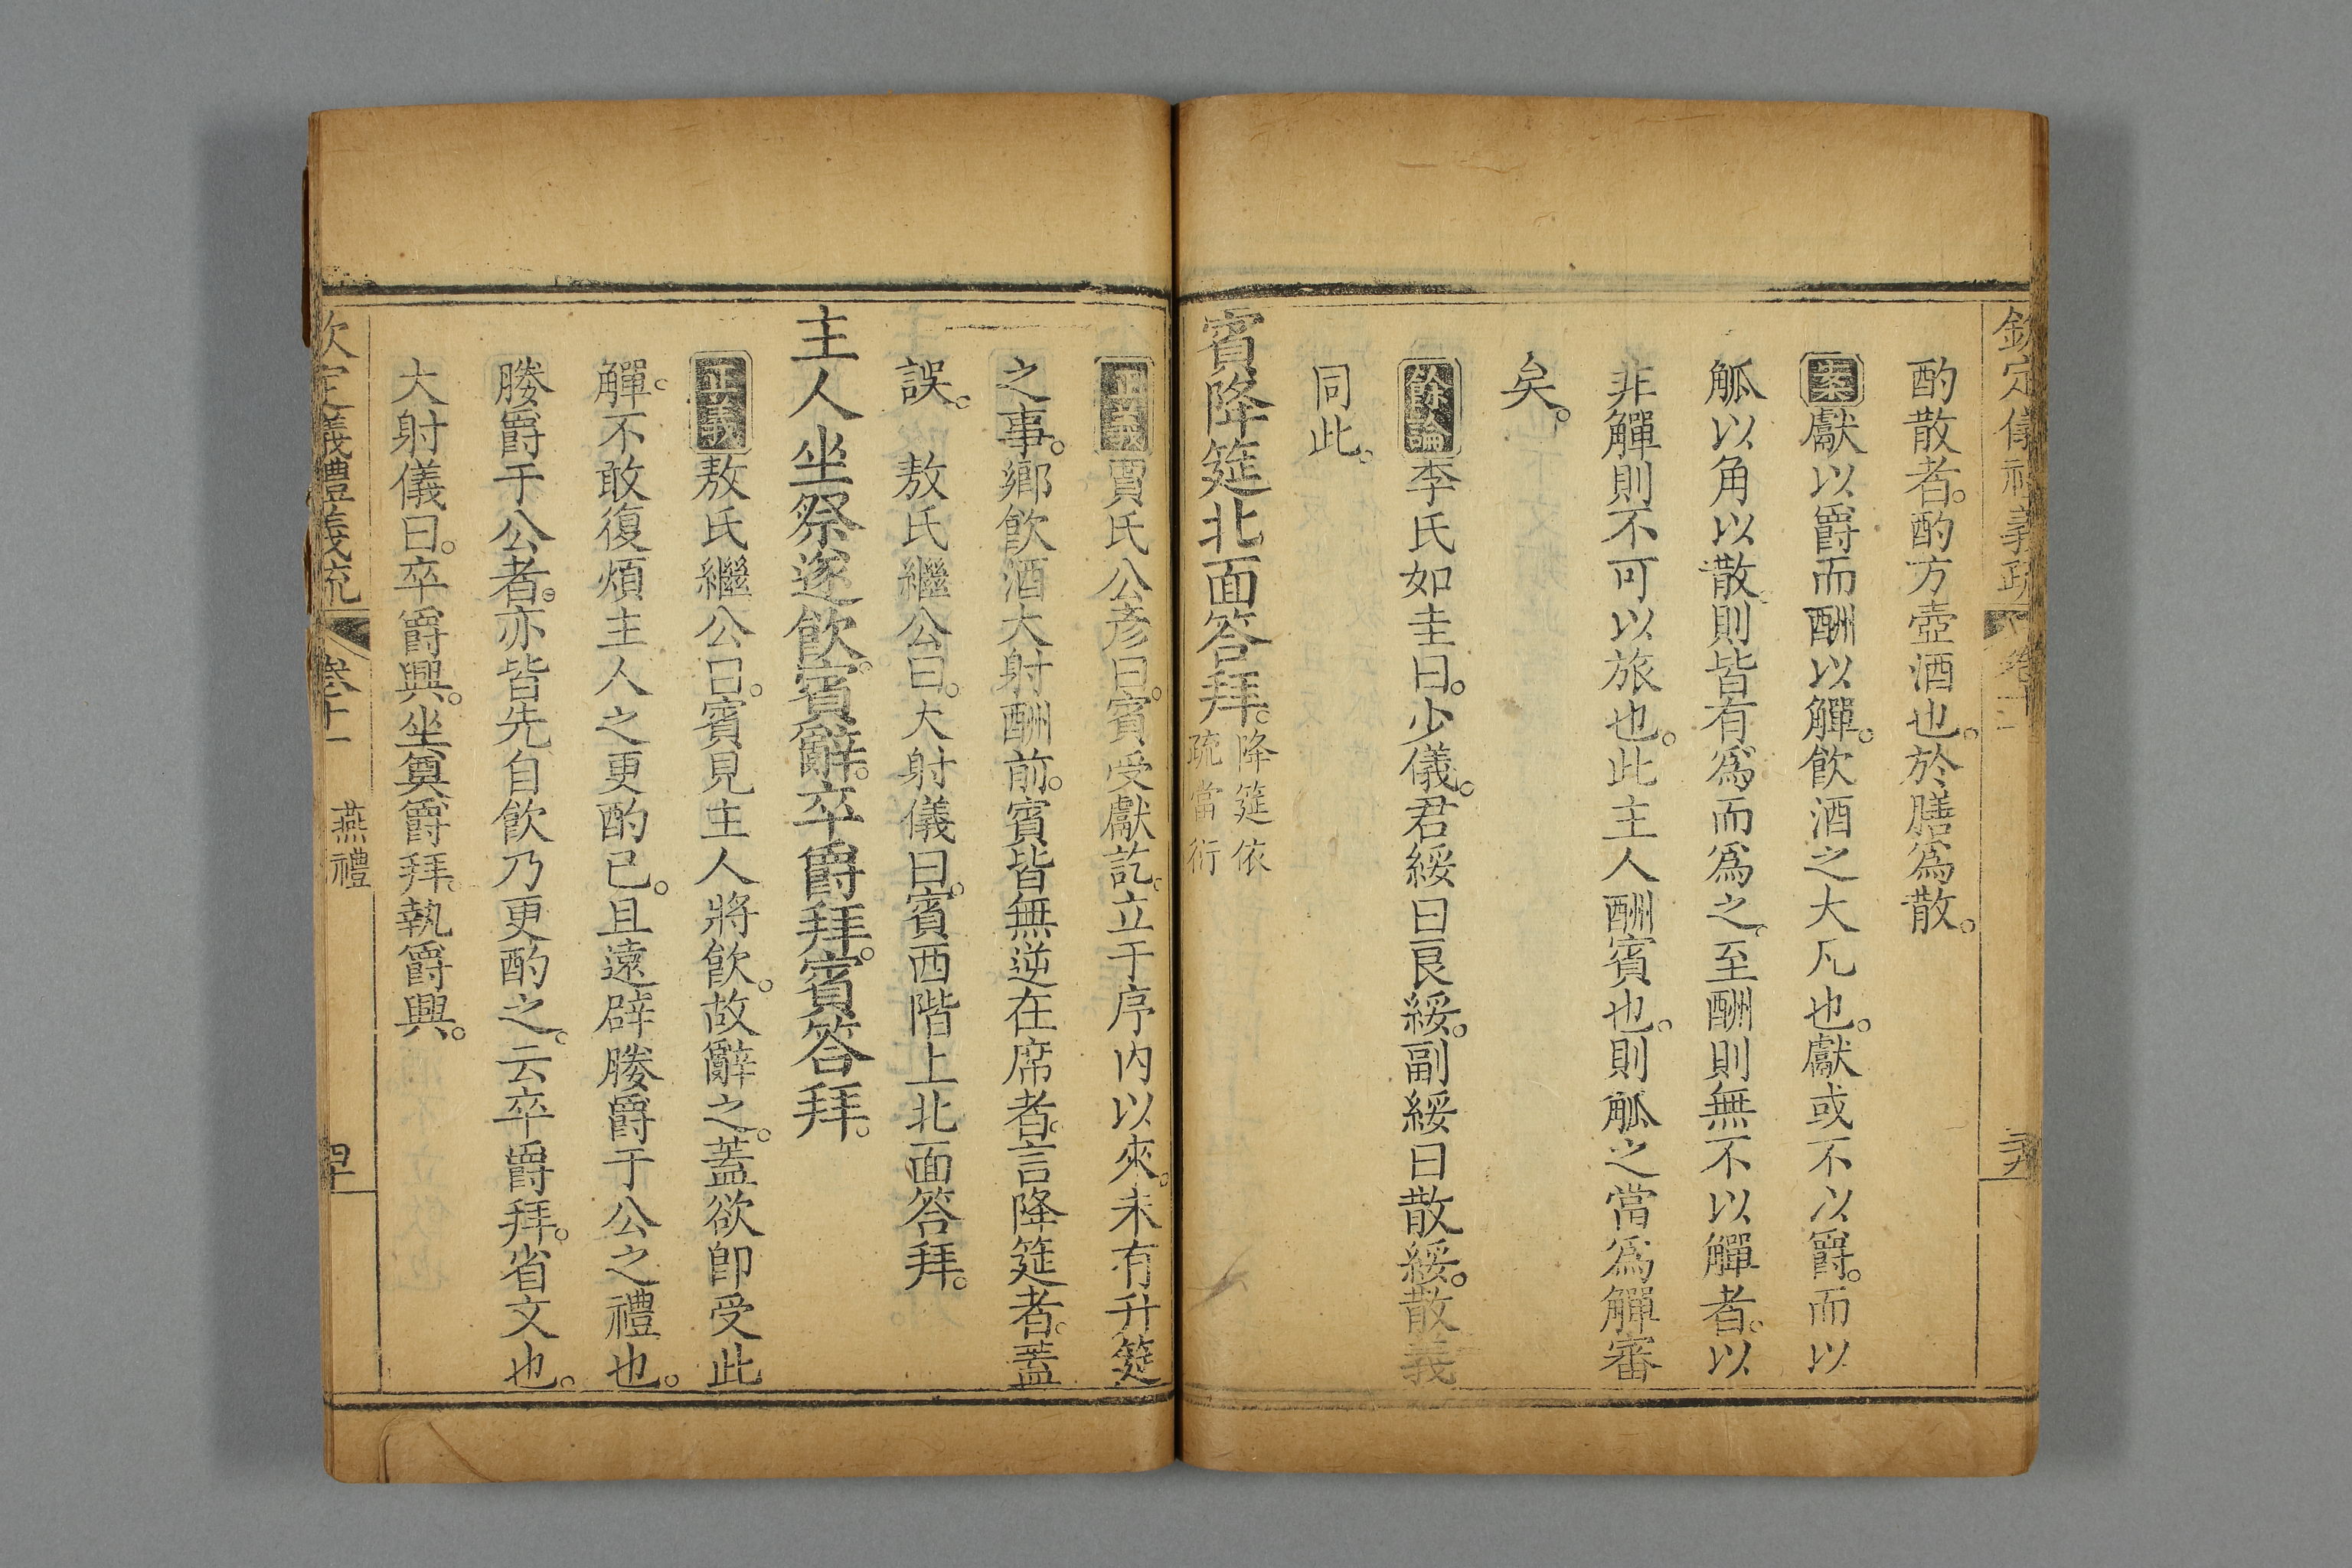 酌散者。酌方壺酒也。於膳爲散。
案獻以爵而酬以觶。飲酒之大凡也。獻或不以爵。而以
觚以角以散。則皆有爲而爲之。至酬則無不以觶者。以
非觶則不可以旅也。此主人酬賓也。則觚之當爲觶審
矣。
餘論李氏如圭曰。少儀。君綏曰良綏。副綏曰散綏。散義
同此。
賓降筵北面答拜。降筵依
疏當衍
正義賈氏公彥曰。賓受獻訖。立于序內以來。未有升筵
之事。鄉飲酒大射酬前。賓皆無逆在席者。言降筵者。蓋
誤。 敖氏繼公曰。大射儀曰。賓西階上北面答拜。
主人坐祭遂飲。賓辭。卒爵拜。賓答拜。
正義敖氏繼公曰。賓見主人將飲。故辭之。蓋欲卽受此
觶。不敢復煩主人之更酌已。且遠辟媵爵于公之禮也。
媵爵于公者。亦皆先自飲乃更酌之。云卒爵拜。省文也。
大射儀曰。卒爵興。坐奠爵拜。執爵興。
欽定儀禮義疏
卷十一
燕禮
四十